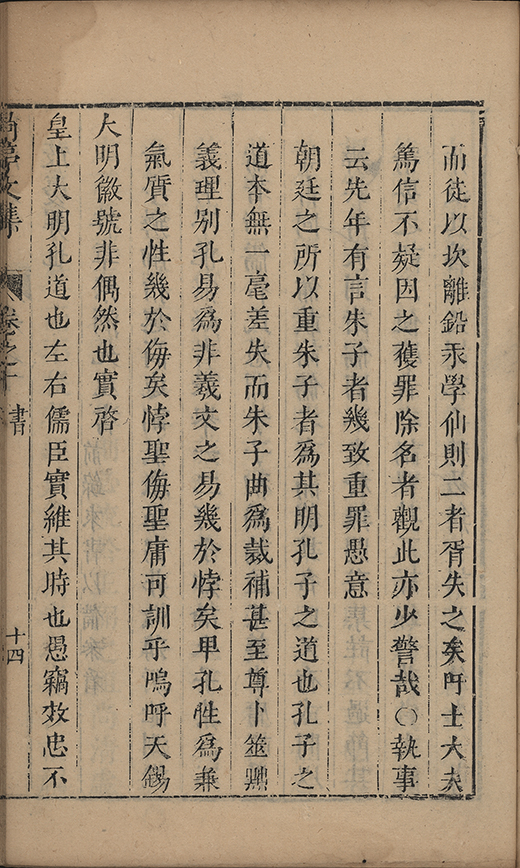 而徒以坎離鉛汞學仙則二者胥失之矣吁士大夫
篤信不疑因之獲罪除名者觀此亦少警哉〇執事
云先年有言朱子者幾致重罪愚意
朝廷之所以重朱子者爲其明孔子之道也孔子之
道本無一毫差失而朱子曲爲裁補甚至尊卜筮黜
義理別孔易爲非羲文之易幾於悖矣甲孔性爲兼
氣質之性幾於侮矣悖聖侮聖庸可訓乎嗚呼天錫
大明徽號非偶然也實啓
皇上大明孔道也左右儒臣實維其時也愚竊效忠不
文集 卷之十 書 十四